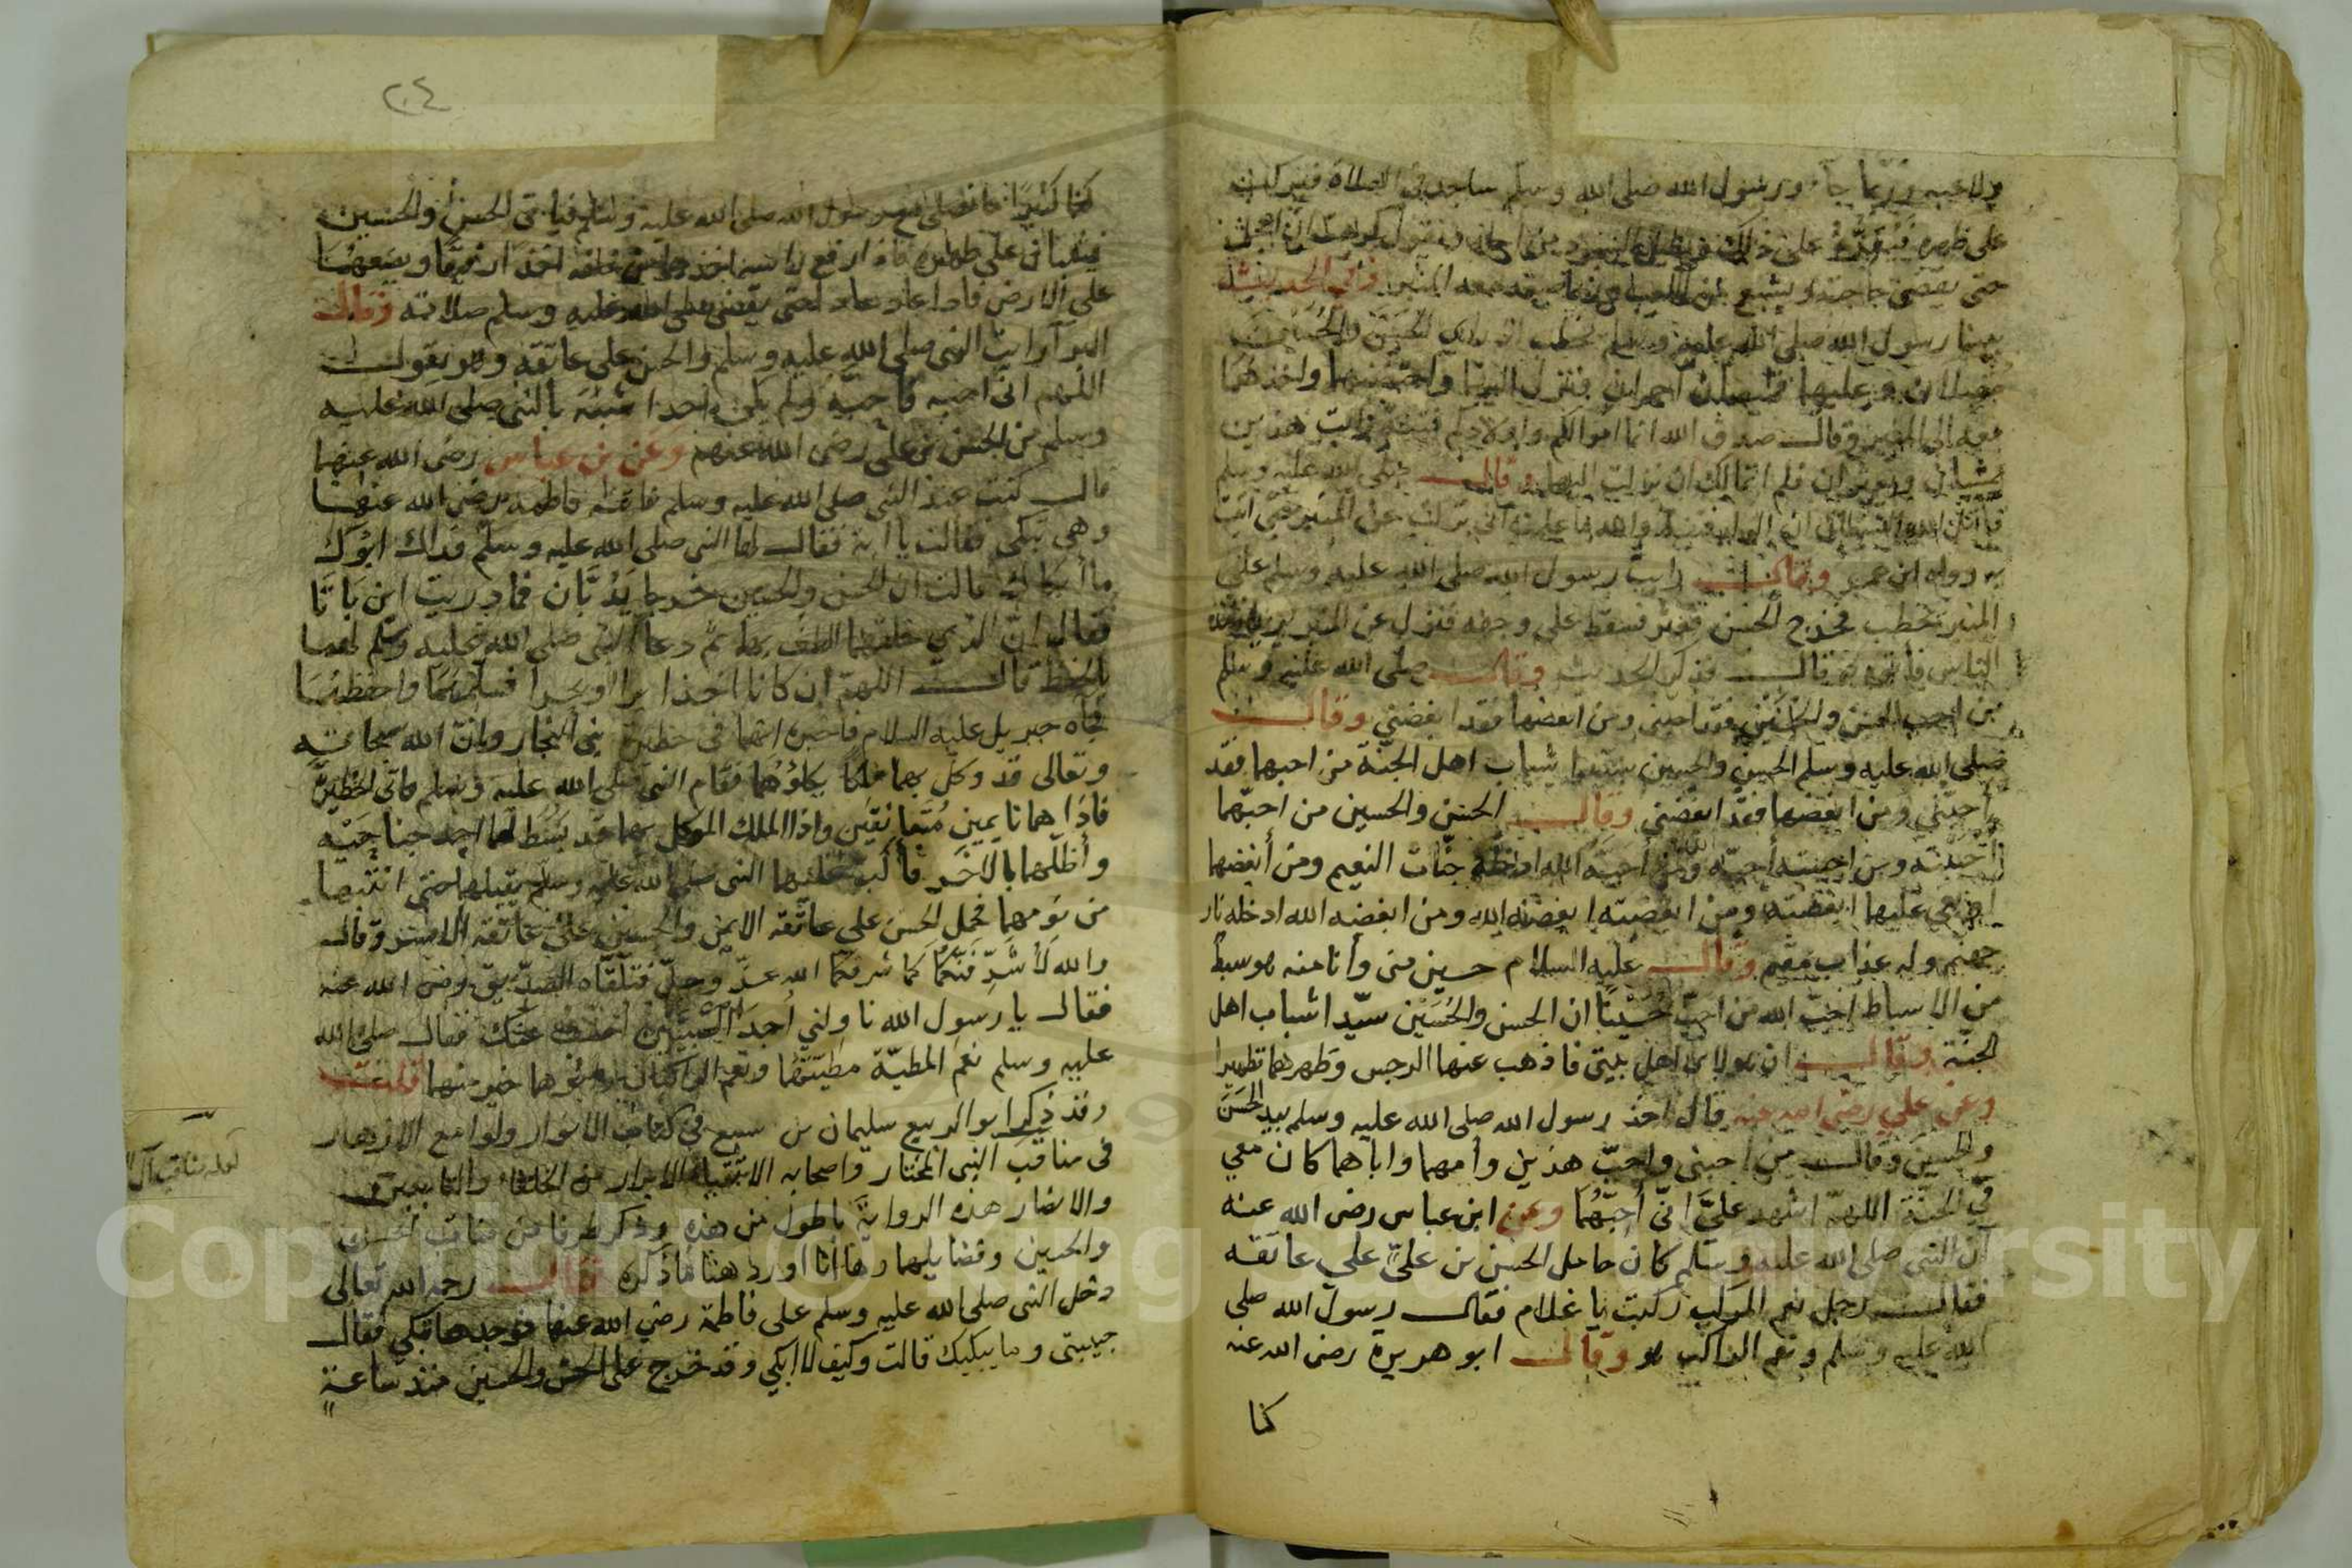 ويلاعبه وربما جاء ورسول الله صلى الله وسلم ساجد في الصلاة فيركب
على ظهره فيقره على ذلك
حتى يقضي حاجته ويشبع من اللعب وربما صعد معه المنبر وفي الحديث
بينا رسول الله صلى الله عليه وسلم يخطب اذ رأى الحسن والحسين
مقبلان وعليهما قميصان احمران فنزل اليهما واحتضنهما واخذهما
معه الى المنبر وقال صدق الله انما اموالكم واولادكم فتنة رايت هذين
يمشيان ويعثران فلم اتمالك ان نزلت اليهما وقال صلى الله عليه وسلم
قاتل الله الشيطان ان الولد فتنة والله ما علمت اني نزلت عن المنبر حتى اتيت
به رواه ابن عمر وقالت رايت رسول الله صلى الله عليه وسلم على
المنبر يخطب فخرج الحسن فعثر فسقط على وجهه فنزل عن المنبر يريده
الناس فاتوه به قال فذكر الحديث وقال صلى الله عليه وسلم
من احب الحسن والحسين فقد احبني ومن ابغضهما فقد ابغضني وقال
صلى الله عليه وسلم الحسن والحسين سيدا شباب اهل الجنة من احبهما فقد
احبني ومن ابغضهما فقد ابغضني وقال الحسن والحسين من احبهما
أحببته ومن احببته أحبه الله ومن أحبه الله ادخله جنات النعيم ومن أبغضهما
او بغى عليهما ابغضته ومن ابغضته ابغضه الله ومن ابغضه الله ادخله نار
جهنم وله عذاب مقيم وقال عليه السلام حسين منى وأنا منه هو سبط
من الاسباط احب الله من احب حسينا ان الحسن والحسين سيدا شباب اهل
الجنة وقال ان هولاى اهل بيتى فاذهب عنهما الرجس وطهرهما تطهيرا
وعن علي رضى الله عنه قال اخذ رسول الله صلى الله عليه وسلم بيد الحسن
والحسين وقال من احبني واحب هذين وأمهما واباهما كان معي
في الجنة اللهم اشهد علي اني أحبهما وعن ابن عباس رضى الله عنه
أن النبى صلى الله عليه وسلم كان حامل الحسن بن علي على عاتقه
فقال رجل نعم المركب ركبت يا غلام فقال رسول الله صلى
الله عليه وسلم ونعم الراكب هو وقال ابو هريرة رضى الله عنه
كنا
٢٠٤
كنا نصلى مع رسول الله صلى الله عليه وسلم فيأتى الحسن والحسين
فيثبان على ظهره فاذا رفع راسه اخذهما من خلفه اخذا رفيقا ويضعهما
على الارض فاذا عاد عادا حتى يقضى صلى الله عليه وسلم صلاته وقال
البرآ رايت النبى صلى الله عليه وسلم والحسن على عاتقه وهو يقول
اللهم انى احبه فاحبه ولم يكن احدا شبه بالنبى صلى الله عليه
وسلم من الحسن بن على رضى الله عنهم وعن بن عباس رضى الله عنهما
قال كنت عند النبى صلى الله عليه وسلم فاتته فاطمة رضى الله عنها
وهى تبكى فقالت يا ابة فقال لها النبى صلى الله عليه وسلم فداك ابوك
ما أبكاك قالت ان الحسن والحسين خرجا يدبان فما دريت اين باتا
فقال ان الذي خلقهما الطف بهما ثم دعا النبى صلى الله عليه وسلم لهما
بالحفظ قال اللهم ان كانا اخذا برا او بحرا فسلمهما واحفظهما
فجاه جبريل عليه السلام فاخبره انهما في حظيرة بني النجار وان الله سبحانه
وتعالى قد وكل بهما ملكا يكلؤهما فقام النبى صلى الله عليه وسلم فاتى الحظيرة
فاذا هما نايمين متعانقين واذا الملك الموكل بهما قد بسط لهما احد جناحيه
وأظلهما بالاخر فأكب عليهما النبى صلى الله عليه وسلم يقبلهما حتى انتبها
من نومهما فحمل الحسن على عاتقه الايمن والحسين على عاتقه الايسر وقال
والله لأشرفنكما كما شرفكما الله عز وجل فتلقاه الصديق رضى الله عنه
فقال يا رسول الله ناولني أحد الصبيين اخفف عنك فقال صلى الله
عليه وسلم نعم المطية مطيتهما ونعم الراكبان وابوهما خير منهما قلت
وقد ذكر ابو الربيع سليمان بن سبع في كتاب الانوار ولوامع الازهار
فى مناقب النبى المختار واصحابه الاتقياء الابرار من الخلفاء والتابعين
والانصار هذه الرواية باطول من هذه وذكر طرفا من مناقب الحسن
والحسين وفضايلهما وها أنا اورد هنا ما ذكره قال رحمه الله تعالى
دخل النبى صلى الله عليه وسلم على فاطمة رضي الله عنها فوجدها تبكي فقال
حبيبتى وما يبكيك قالت وكيف لا ابكي وقد خرج على الحسن والحسين منذ ساعة
لعله مناقب آل